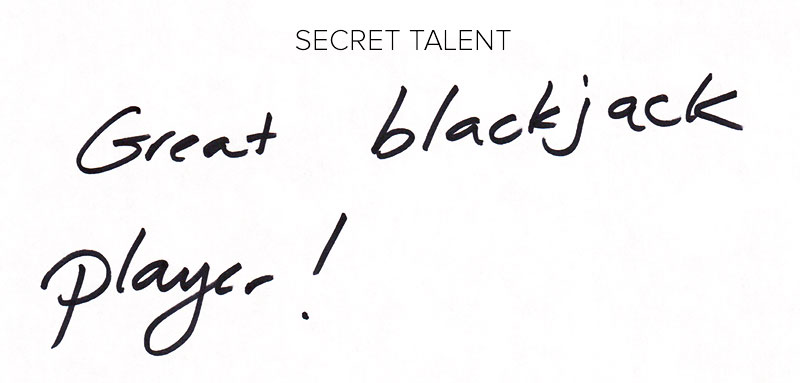 SECRET TALENT
Great blackjack
player!